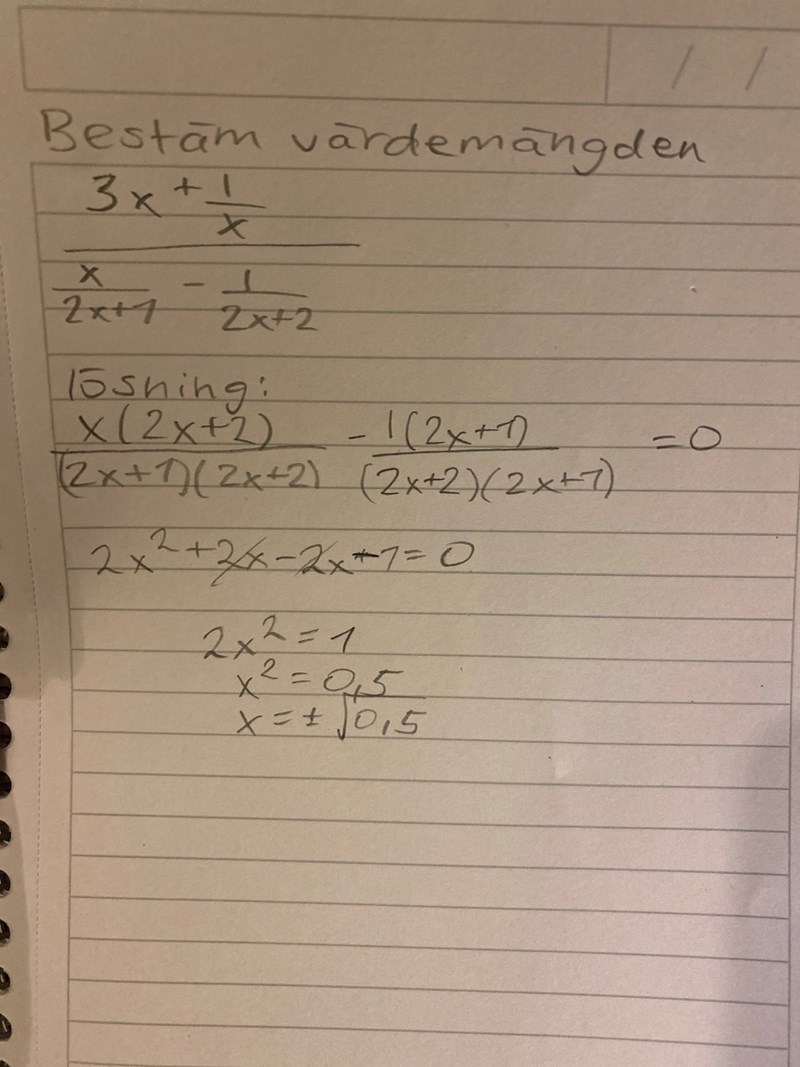 / /
Bestäm värdemängden
3x + 1/x
x/2x+1 - 1/2x+2
lösning:
x(2x+2)/(2x+1)(2x+2) - 1(2x+1)/(2x+2)(2x+1) = 0
2x² + 2x - 2x - 1 = 0
2x² = 1
x² = 0,5
x = ± √0,5